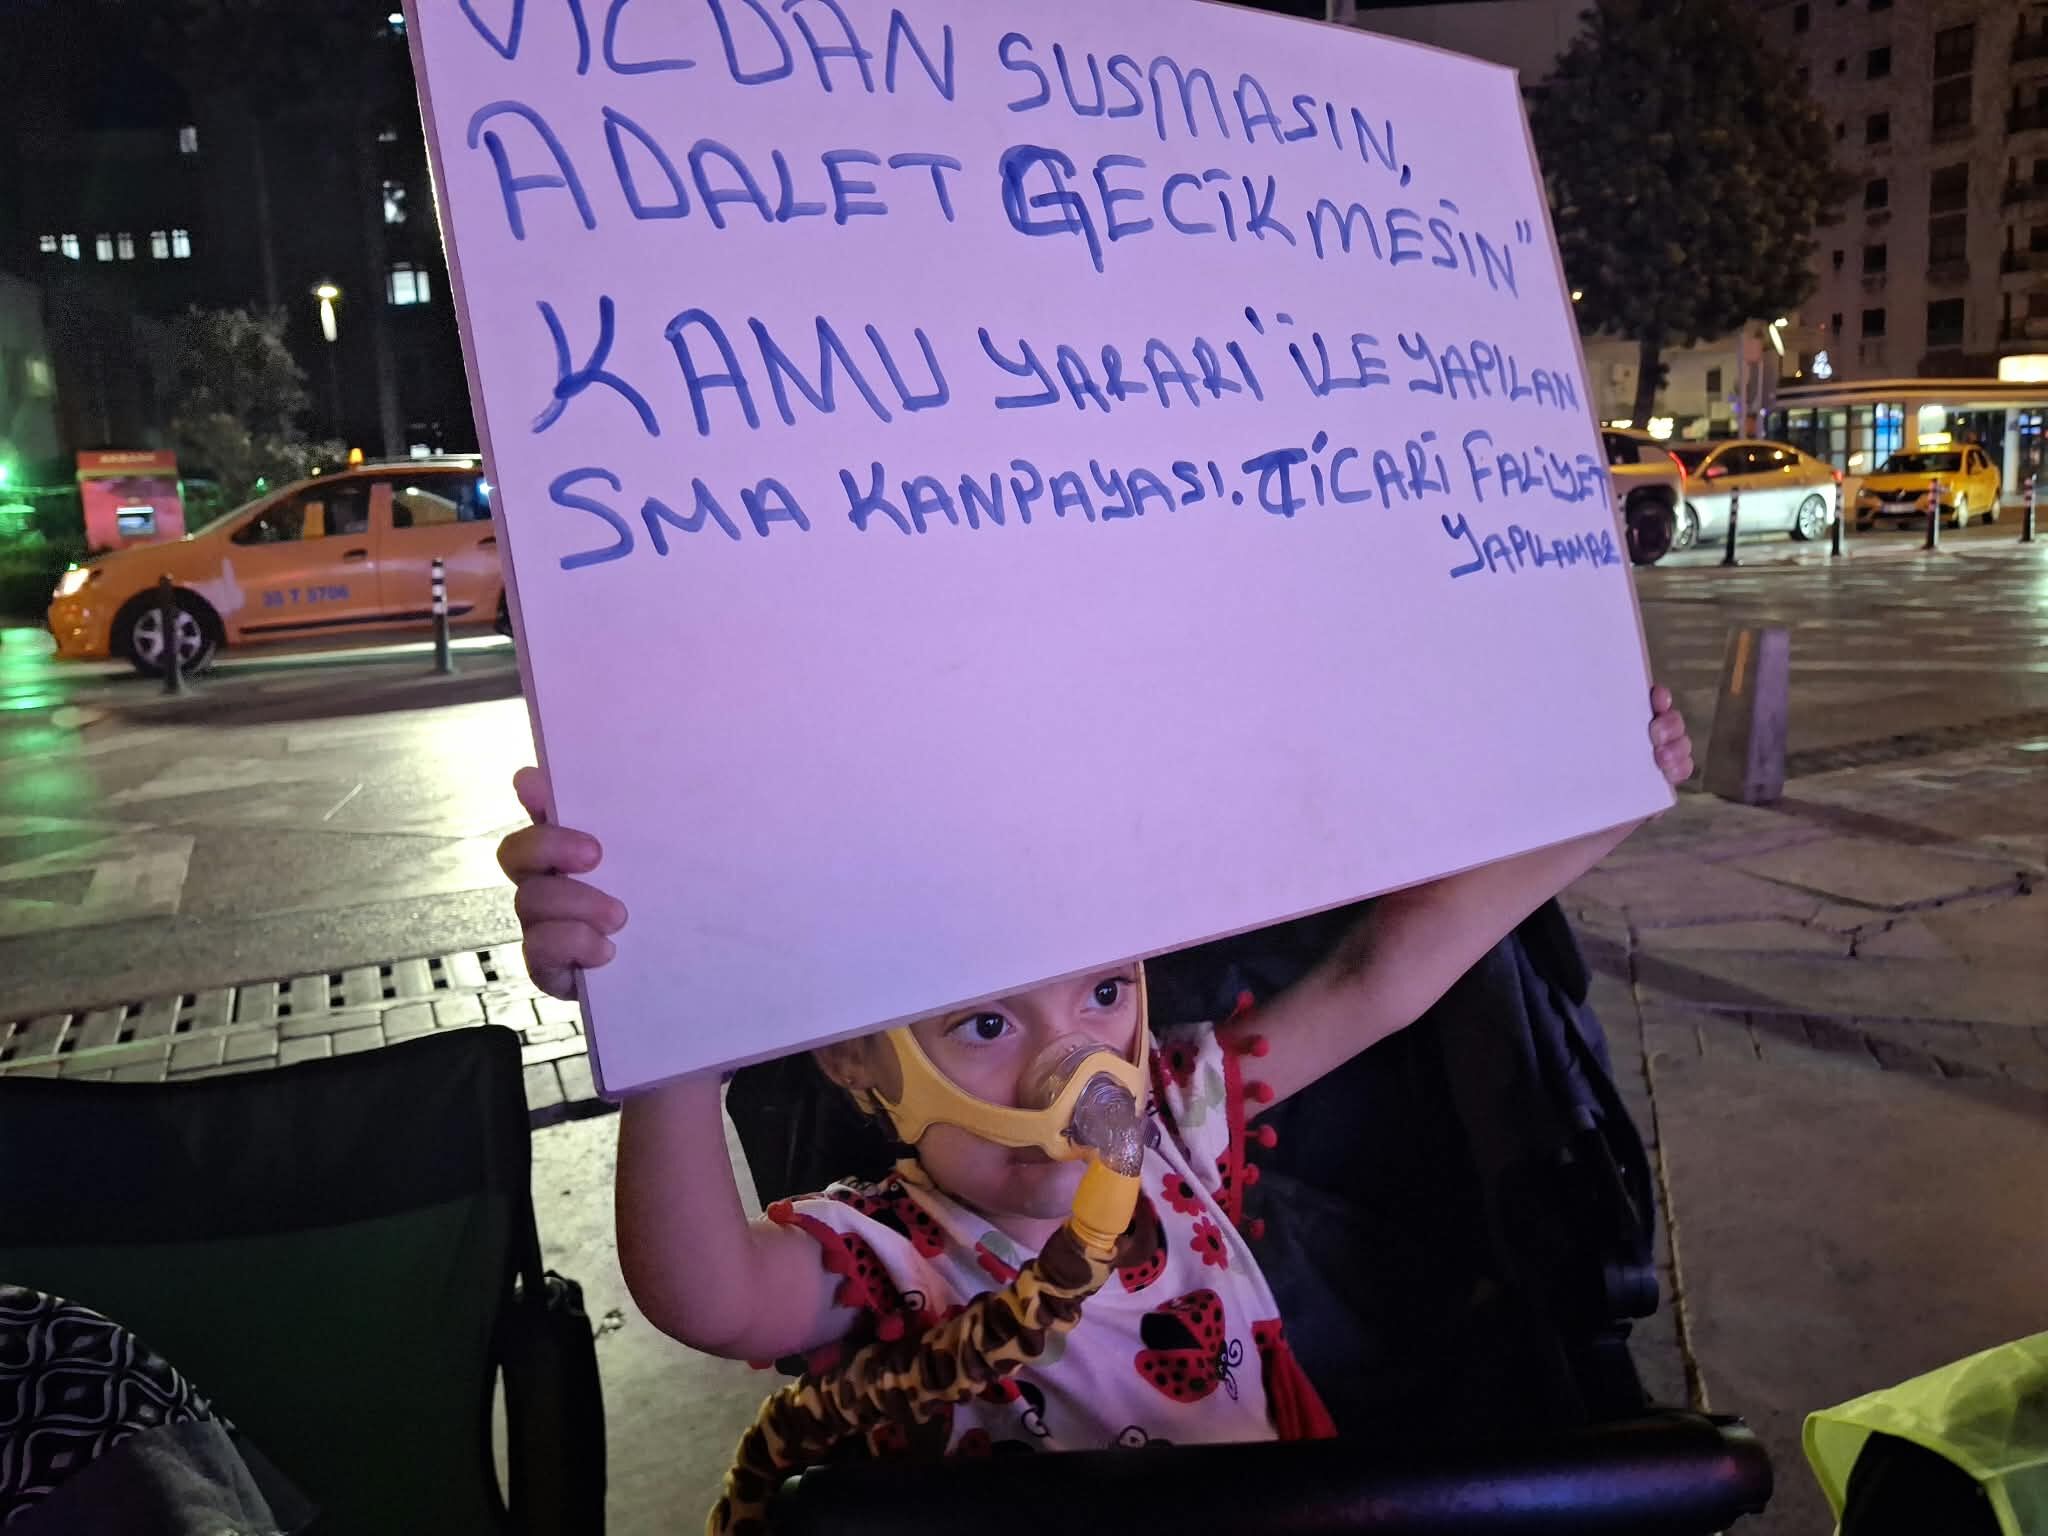 VİCDAN SUSMASIN,
ADALET GECİKMESİN"
KAMU YARARI' İLE YAPILAN
SMA KANPAYASI. TİCARİ FALİYET
YAPILAMAZ
AKBANK
35 T 5706